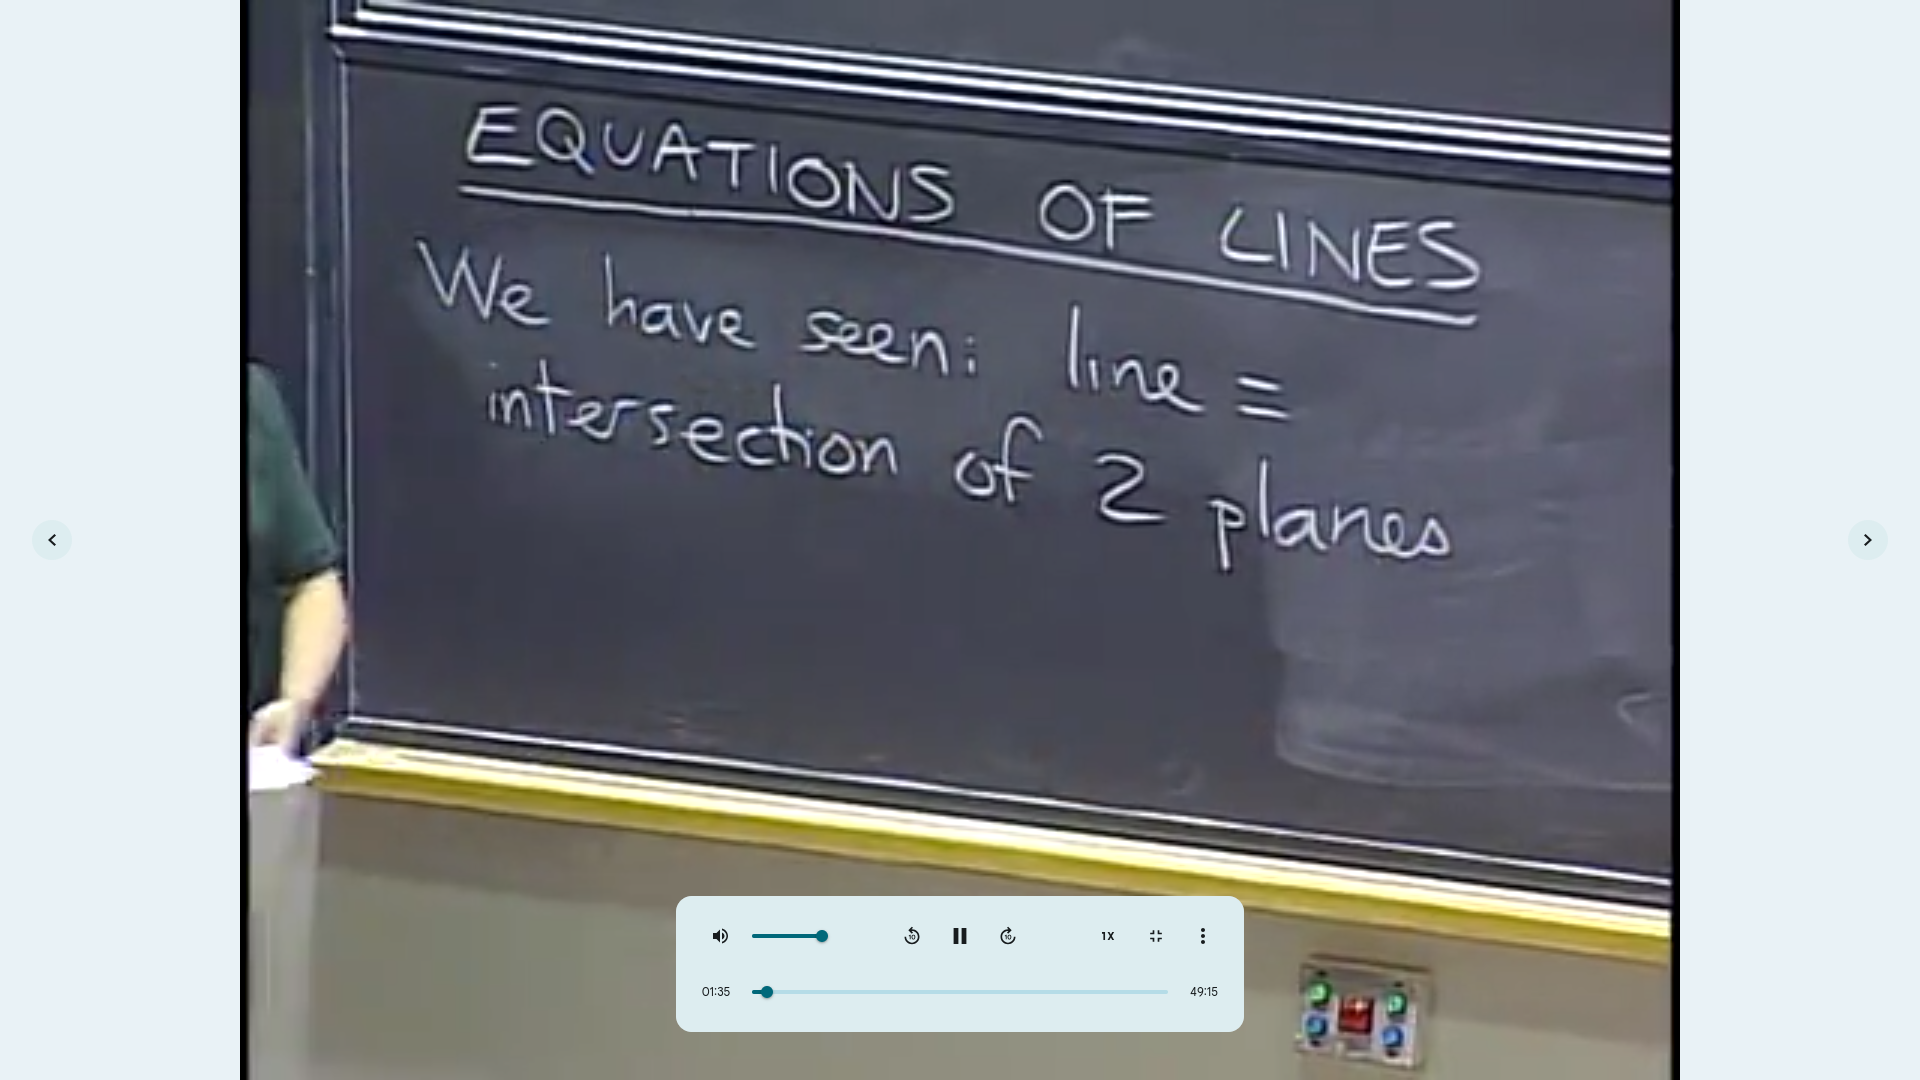 EQUATIONS OF LINES
We have seen: line =
intersection of 2 planes
10
10
1X
01:35
49:15